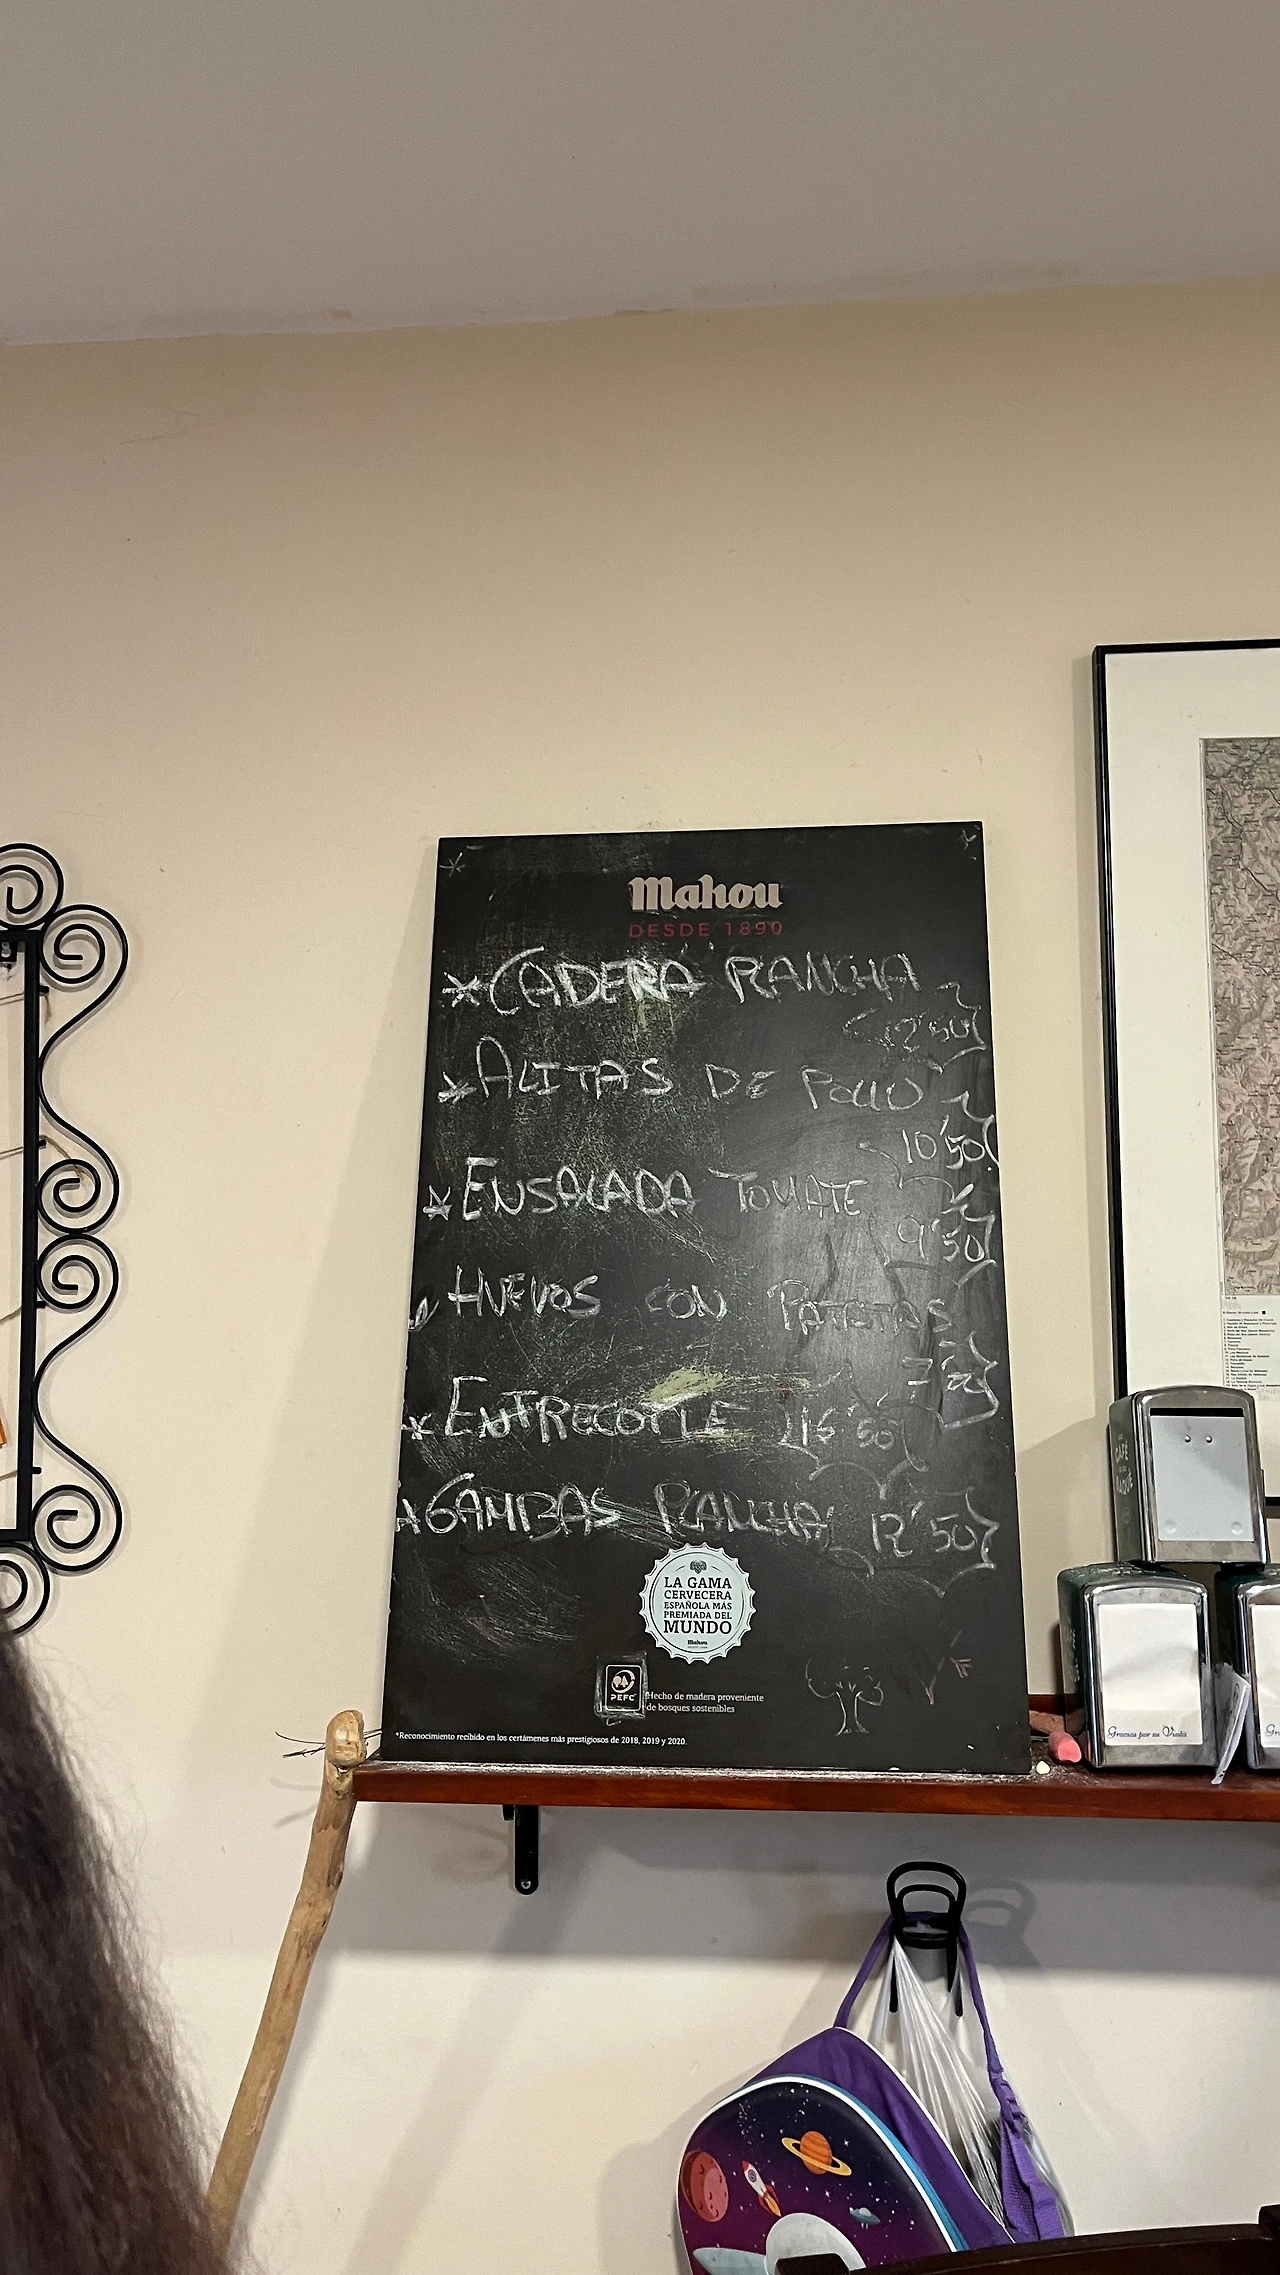 Mahou
DESDE 1890
*CADERA PLANCHA
12'50
*ALITAS DE POLLO
10'50
*ENSALADA TOMATE
9'50
HUEVOS CON PATATAS
*ENTRECOTTE 16'50
*GAMBAS PLANCHA 12'50
LA GAMA
CERVECERA
ESPAÑOLA MÁS
PREMIADA DEL
MUNDO
Mahou
PEFC
Hecho de madera proveniente
de bosques sostenibles
*Reconocimiento recibido en los certámenes más prestigiosos de 2018, 2019 y 2020.
CAFÉ
Gracias por su Visita